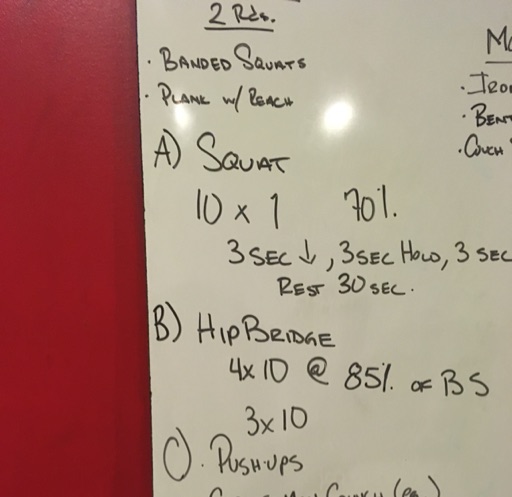 2 Rds.
· BANDED SQUATS
· PLANK w/ REACH
A) SQUAT
10 x 1 70%
3 SEC ↓, 3 SEC HOLD, 3 SEC
REST 30 SEC.
B) HIP BRIDGE
4x10 @ 85% OF BS
3x10
C). PUSH-UPS
· BENT
· COUCH